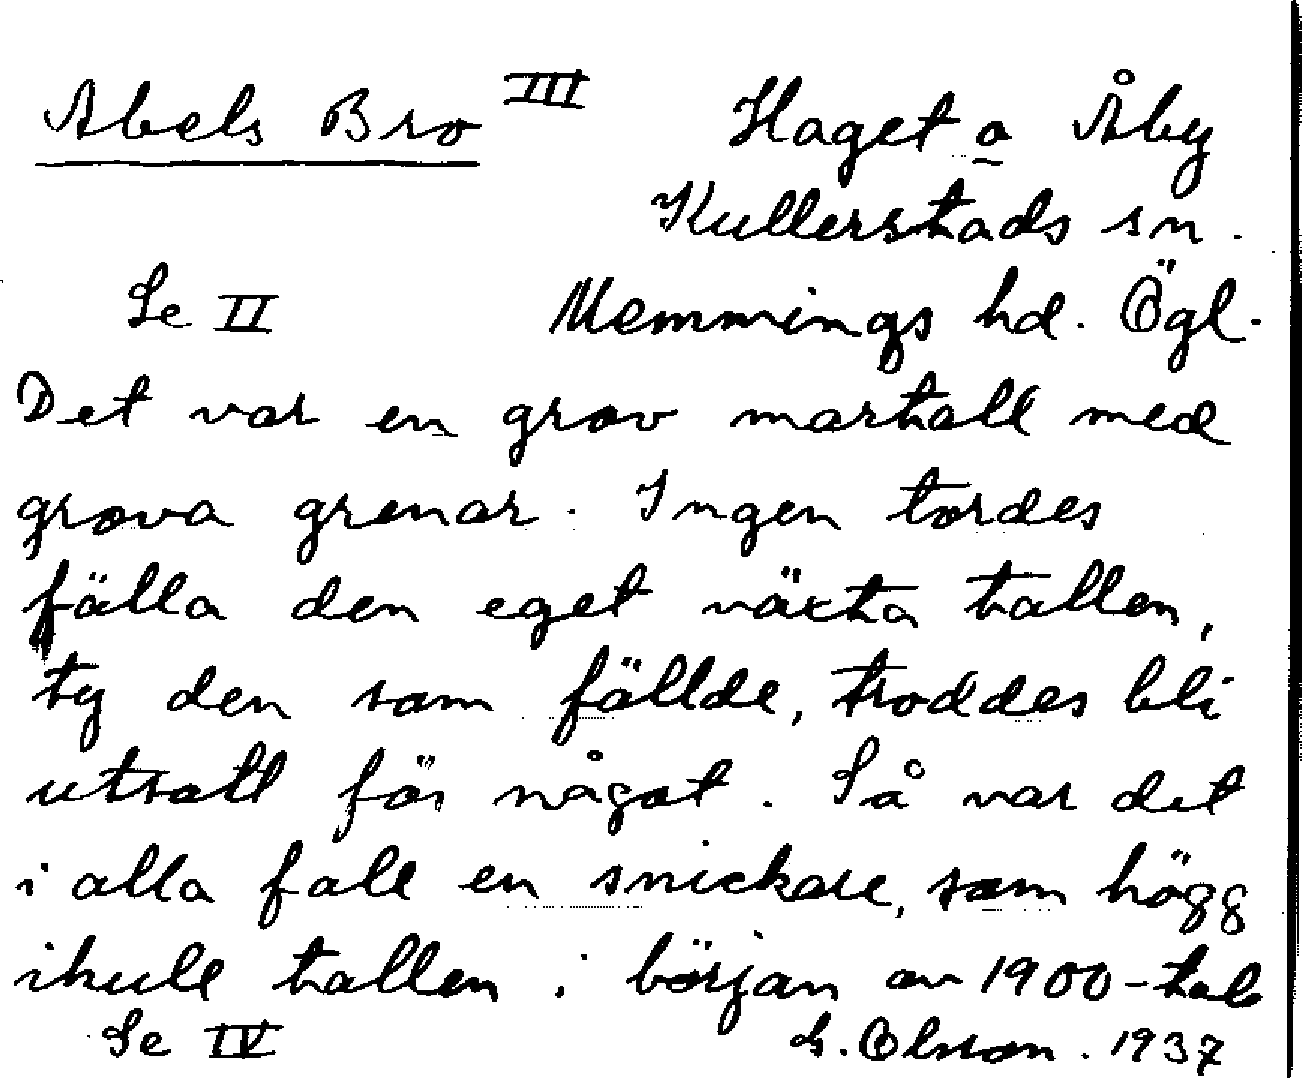 Abels Bro III Haget o Åby
Kullerstads sn.
Se II Memmings hd. Ögl.
Det var en grov martall med
grova grenar. Ingen tordes
fälla den eget växta tallen,
ty den som fällde, troddes bli
utsatt för något. Så var det
i alla fall en snickare, som högg
ihull tallen i början av 1900-tal
Se IV G. Olsson. 1937